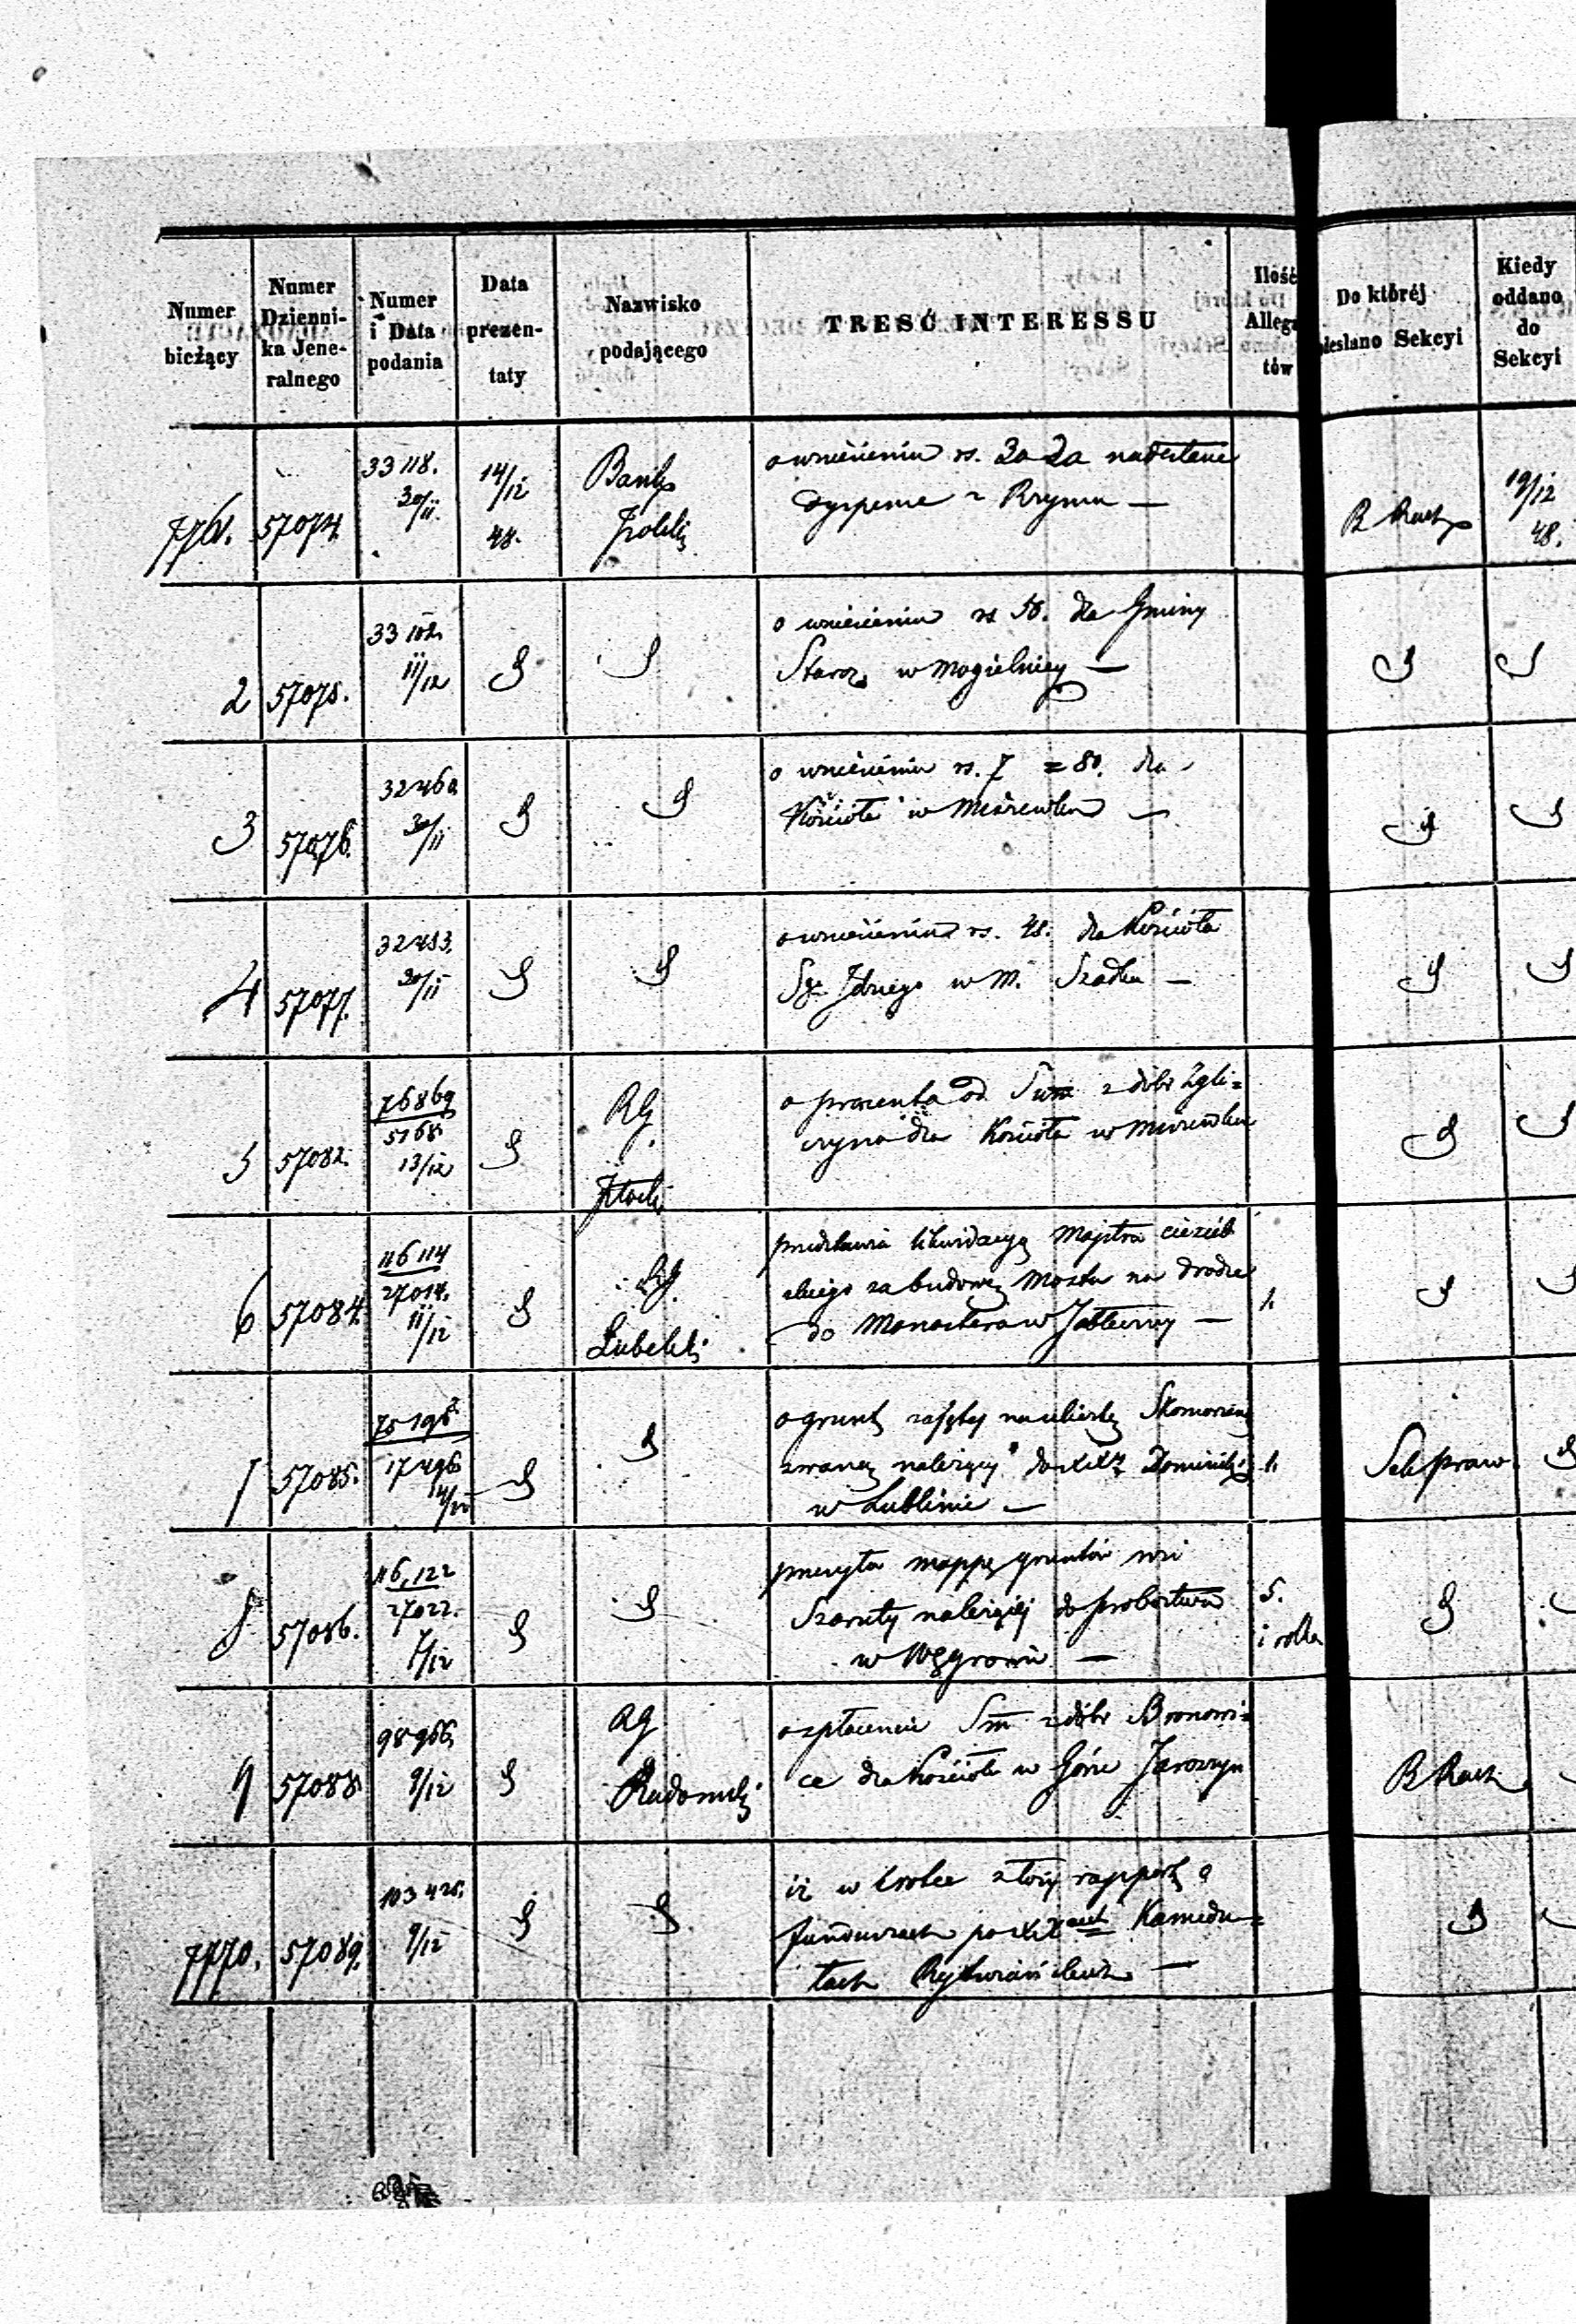 Numer bieżący
Numer Dzienni-ka Jene-ralnego
Numer i Data podania
Data prezen-taty
Nazwisko podającego
TREŚĆ INTERESSU
Ilość Allega tów
Do któréj esłano Sekcyi
Kiedy oddano do Sekcyi
7761. 57074. 33118. 30/11. 14/12 48. Bank Polski
o wniesieniu rs. nadesłane
dyspense z Rzymu —
19/12 48.
2 57075. 33102 11/12
o wniesieniu rs 50. dla Gminy
Staroz. w Mogielnicy —
3 57076. 32460 30/11
o wniesieniu rs. 7 = 80. dla
Kościoła w —
4 57077. 32483. 30/11
o wniesieniu rs. 48. dla Kościoła
Sgo Idziego w M. Szadku —
5 57082. 76869 5168 13/12 RG Płocki
o procenta od Sum z dóbr Zgli=
czyna dla Kościoła w
6 57084. 116114 27014. 11/12 RG. Lubelski
przedstawia likwidacyą Majstra ciesiel
skiego za budowę Mostu na drodze
do Monasteru w Jabłeczny — 1.
7 57085. 17496
o grunt zajęty na ulicę
zwaną należący do XX Dominik: 1.
w Lublinie —
8 57086. 116,122 27022. 7/12
przesyła mappę gruntów wsi
Szaruty należącej do probostwa 5.
w Węgrowie — i rolla
9 57088. 98966 9/12 RG Radomski
o spłacenie Sm z dóbr Bronowi=
ce dla Kościoła w Górze Jaroszyn
7770. 57089. 103425. 9/12
iż w krotce złoży rapport o
funduszach po XX Kamedu=
łach Rytwiańskich —